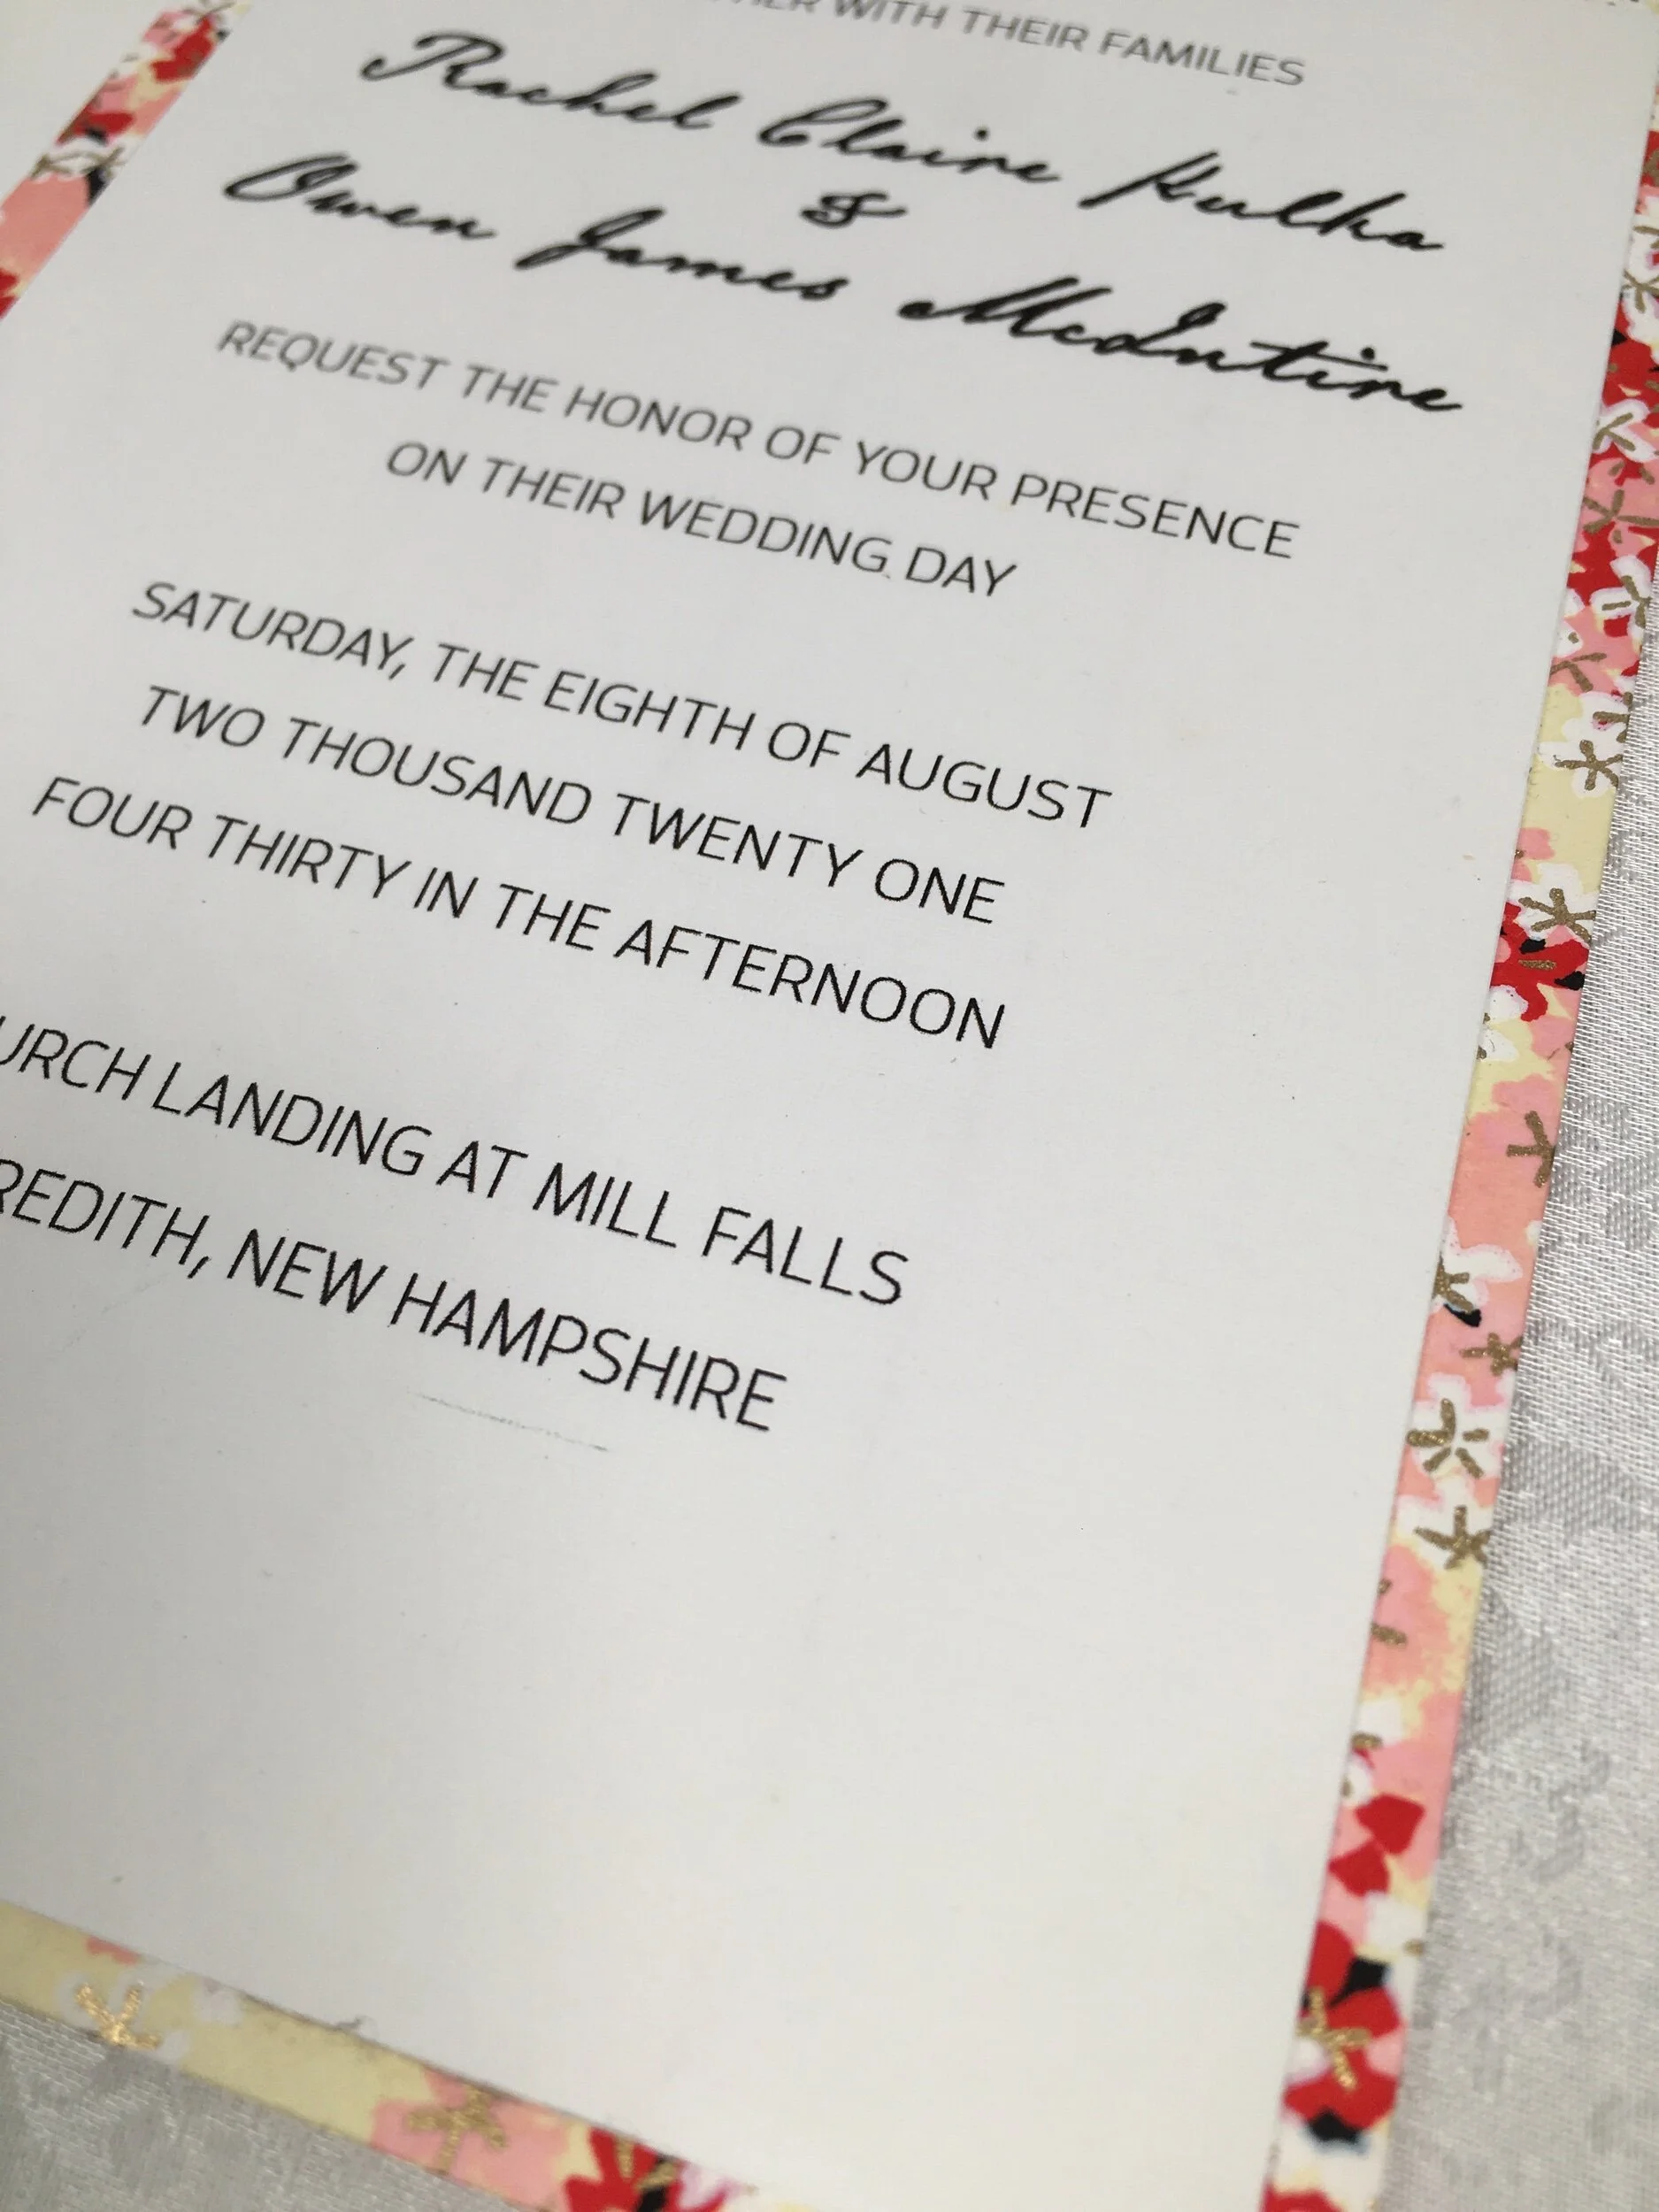 WITH THEIR FAMILIES
Rachel Claire Kulka
&
Owen James McIntire
REQUEST THE HONOR OF YOUR PRESENCE
ON THEIR WEDDING DAY
SATURDAY, THE EIGHTH OF AUGUST
TWO THOUSAND TWENTY ONE
FOUR THIRTY IN THE AFTERNOON
URCH LANDING AT MILL FALLS
REDITH, NEW HAMPSHIRE